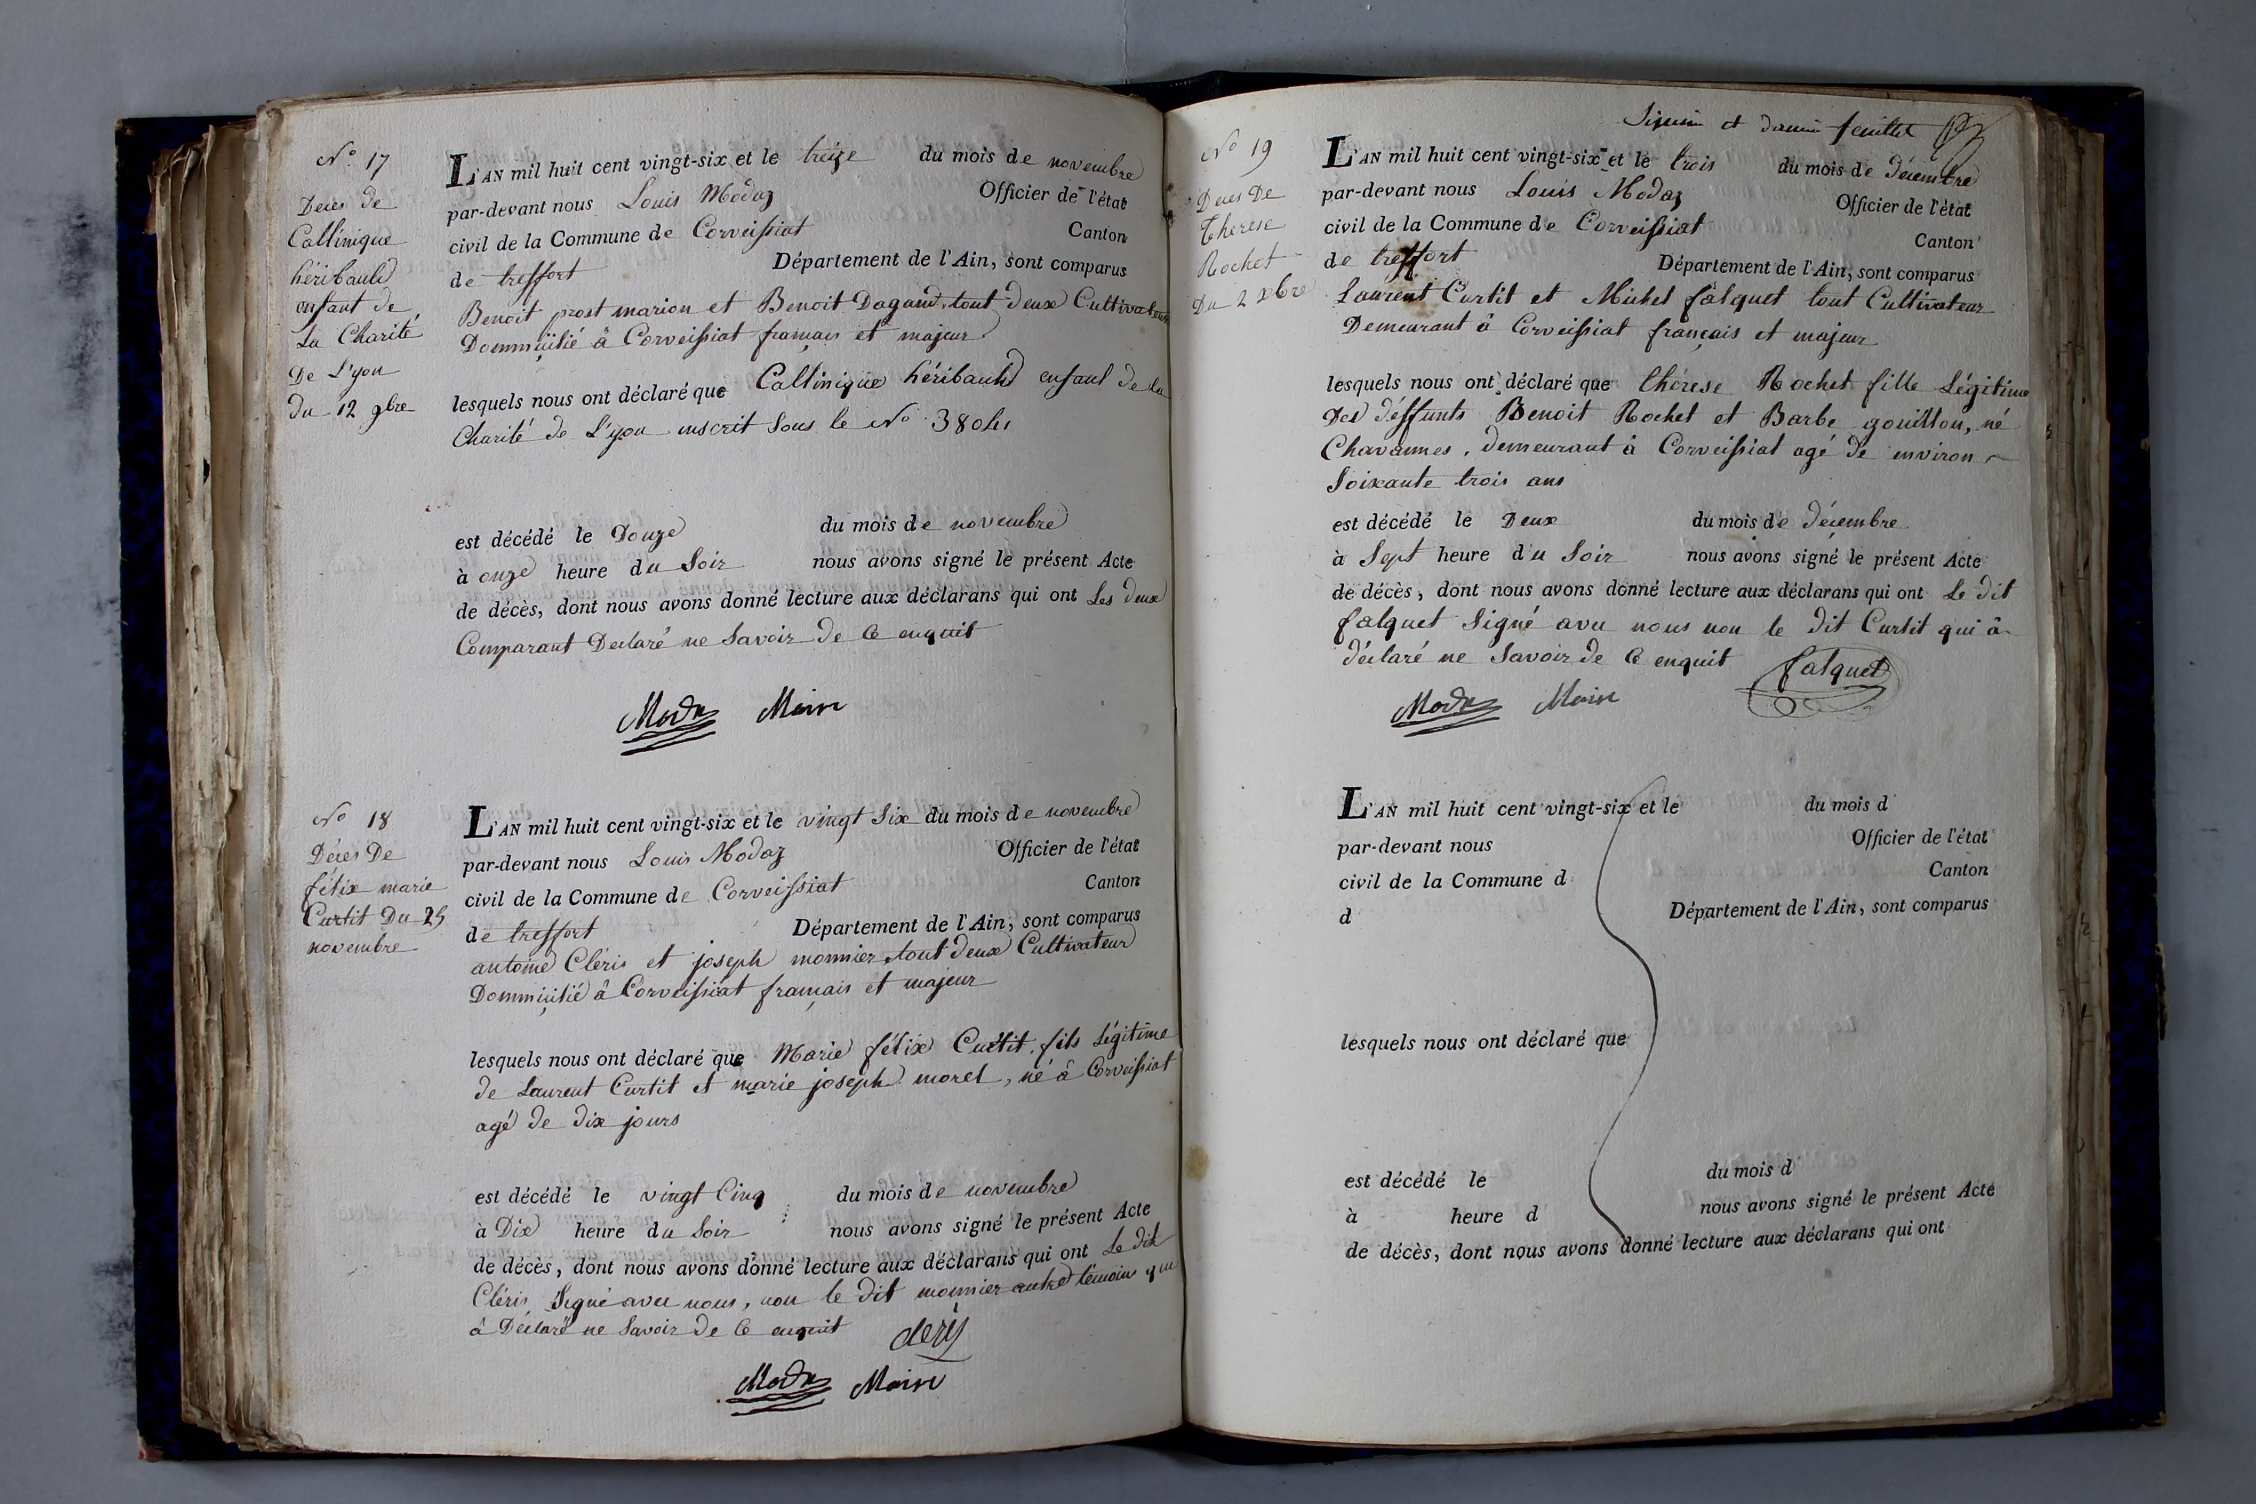 N.º 17
Déces de
Callinique
héribauld
enfant de
La Charité
De L'yon
du 12 9bre
L'AN mil huit cent vingt-six et le treize du mois de novembre
par-devant nous Louis Modaz Officier de l'état
civil de la Commune de Corveissiat Canton
de treffort Département de l'Ain, sont comparus
Benoit prost marion et Benoit Dagand, tout deux Cultivateur
Dommicilié â Corveissiat français et majeur
lesquels nous ont déclaré que Callinique héribauld enfant de la
Charité de L'yon inscrit Sous le N.º
est décédé le Douze du mois de novembre
à onze heure du Soir nous avons signé le présent Acte
de décès, dont nous avons donné lecture aux déclarans qui ont Les deux
Comparant Declaré ne Savoir de Ce enquit
Modaz Maire
N.º 18
Déces De
félix marie
Curtit Du 25
novembre
L'AN mil huit cent vingt-six et le vingt Six du mois de novembre
par-devant nous Louis Modaz Officier de l'état
civil de la Commune de Corveissiat Canton
de treffort Département de l'Ain, sont comparus
antoine Cléris et joseph monnier, tout deux Cultivateur
Dommicilié â Corveissiat français et majeur
lesquels nous ont déclaré que Marie félix Curtit, fils Légitime
de Laurent Curtit et marie joseph morel, né â Corveissiat
agé de dix jours
est décédé le vingt Cinq du mois de novembre
à Dix heure du Soir nous avons signé le présent Acte
de décès, dont nous avons donné lecture aux déclarans qui ont Le dit
Cléris Signé avec nous, non le dit monnier autre témoin qui
â Déclaré ne Savoir de Ce enquit cleris
Modaz Maire
feuillet
N.º 19
Déces De
Therese
Rochet
Du 2 Xbre
L'AN mil huit cent vingt-six et le trois du mois de décembre
par-devant nous Louis Modaz Officier de l'état
civil de la Commune de Corveissiat Canton
de treffort Département de l'Ain, sont comparus
Laurent Curtit et Michel falquet tout Cultivateur
Demeurant â Corveissiat français et majeur
lesquels nous ont déclaré que thérese Rochet fille Légitime
Des déffunts Benoit Rochet et Barbe gouillon, né
Chavannes, demeurant â Corveissiat agé de environ
Soixante trois ans
est décédé le Deux du mois de décembre
à Sept heure du Soir nous avons signé le présent Acte
de décès, dont nous avons donné lecture aux déclarans qui ont Le dit
falquet Signé avec nous non le dit Curtit qui â
déclaré ne Savoir de Ce enquit falquet
Modaz Maire
L'AN mil huit cent vingt-six et le du mois d
par-devant nous Officier de l'état
civil de la Commune d Canton
d Département de l'Ain, sont comparus
lesquels nous ont déclaré que
est décédé le du mois d
à heure d nous avons signé le présent Acte
de décès, dont nous avons donné lecture aux déclarans qui ont